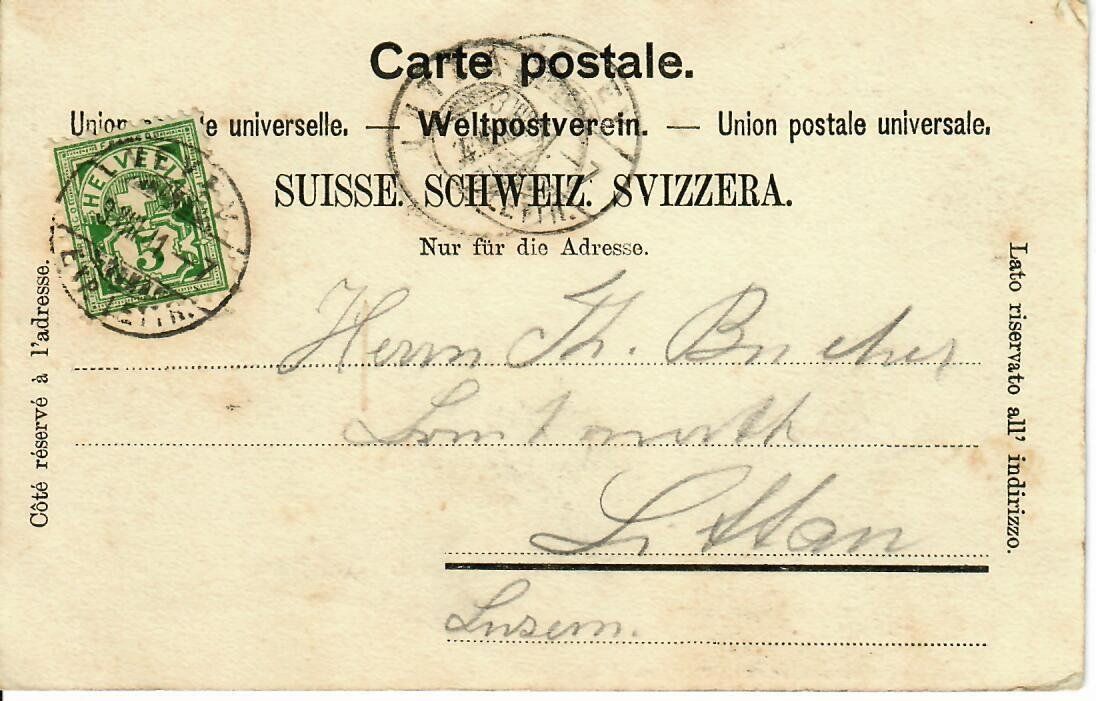 Carte postale.
Union universelle. — Weltpostverein. — Union postale universale.
SUISSE. SCHWEIZ. SVIZZERA.
Nur für die Adresse.
HELVETIA
5
Côté réservé à l'adresse.
Lato riservato all' indirizzo.
Herrn Th. Bucher
Littau
Luzern.